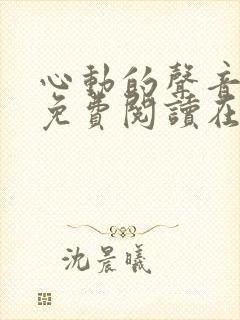 心動的聲音
免費閱讀在
沈晨曦